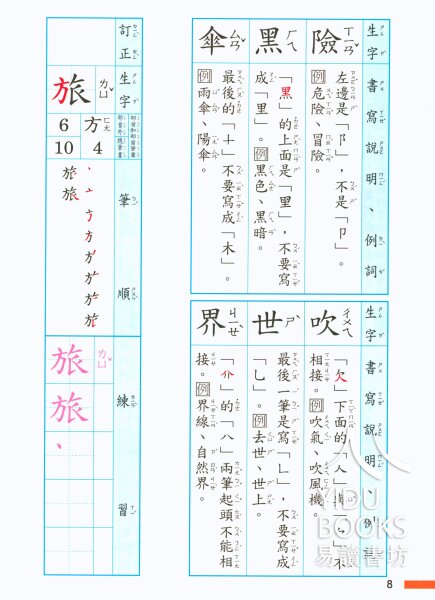 生字書寫說明、例詞
險 ㄒㄧㄢˇ
左邊是「阝」，不是「卩」。
例 危險、冒險。
黑 ㄏㄟ
「黑」的上面是「里」，不要寫
成「里」。例 黑色、黑暗。
傘 ㄙㄢˇ
最後的「十」不要寫成「木」。
例 雨傘、陽傘。
生字書寫說明、例詞
吹 ㄔㄨㄟ
「欠」下面的「人」與「㇇」不
相接。例 吹氣、吹風機。
世 ㄕˋ
最後一筆是寫「㇄」，不要寫成
「乚」。例 去世、世上。
界 ㄐㄧㄝˋ
「介」的「八」兩筆起頭不能相
接。例 界線、自然界。
訂正生字
旅 ㄌㄩˇ
方 ㄈㄤ
4
6
10
筆順
旅旅
練習
旅 ㄌㄩˇ
旅、
YIDU
BOOKS
易讀書坊
8